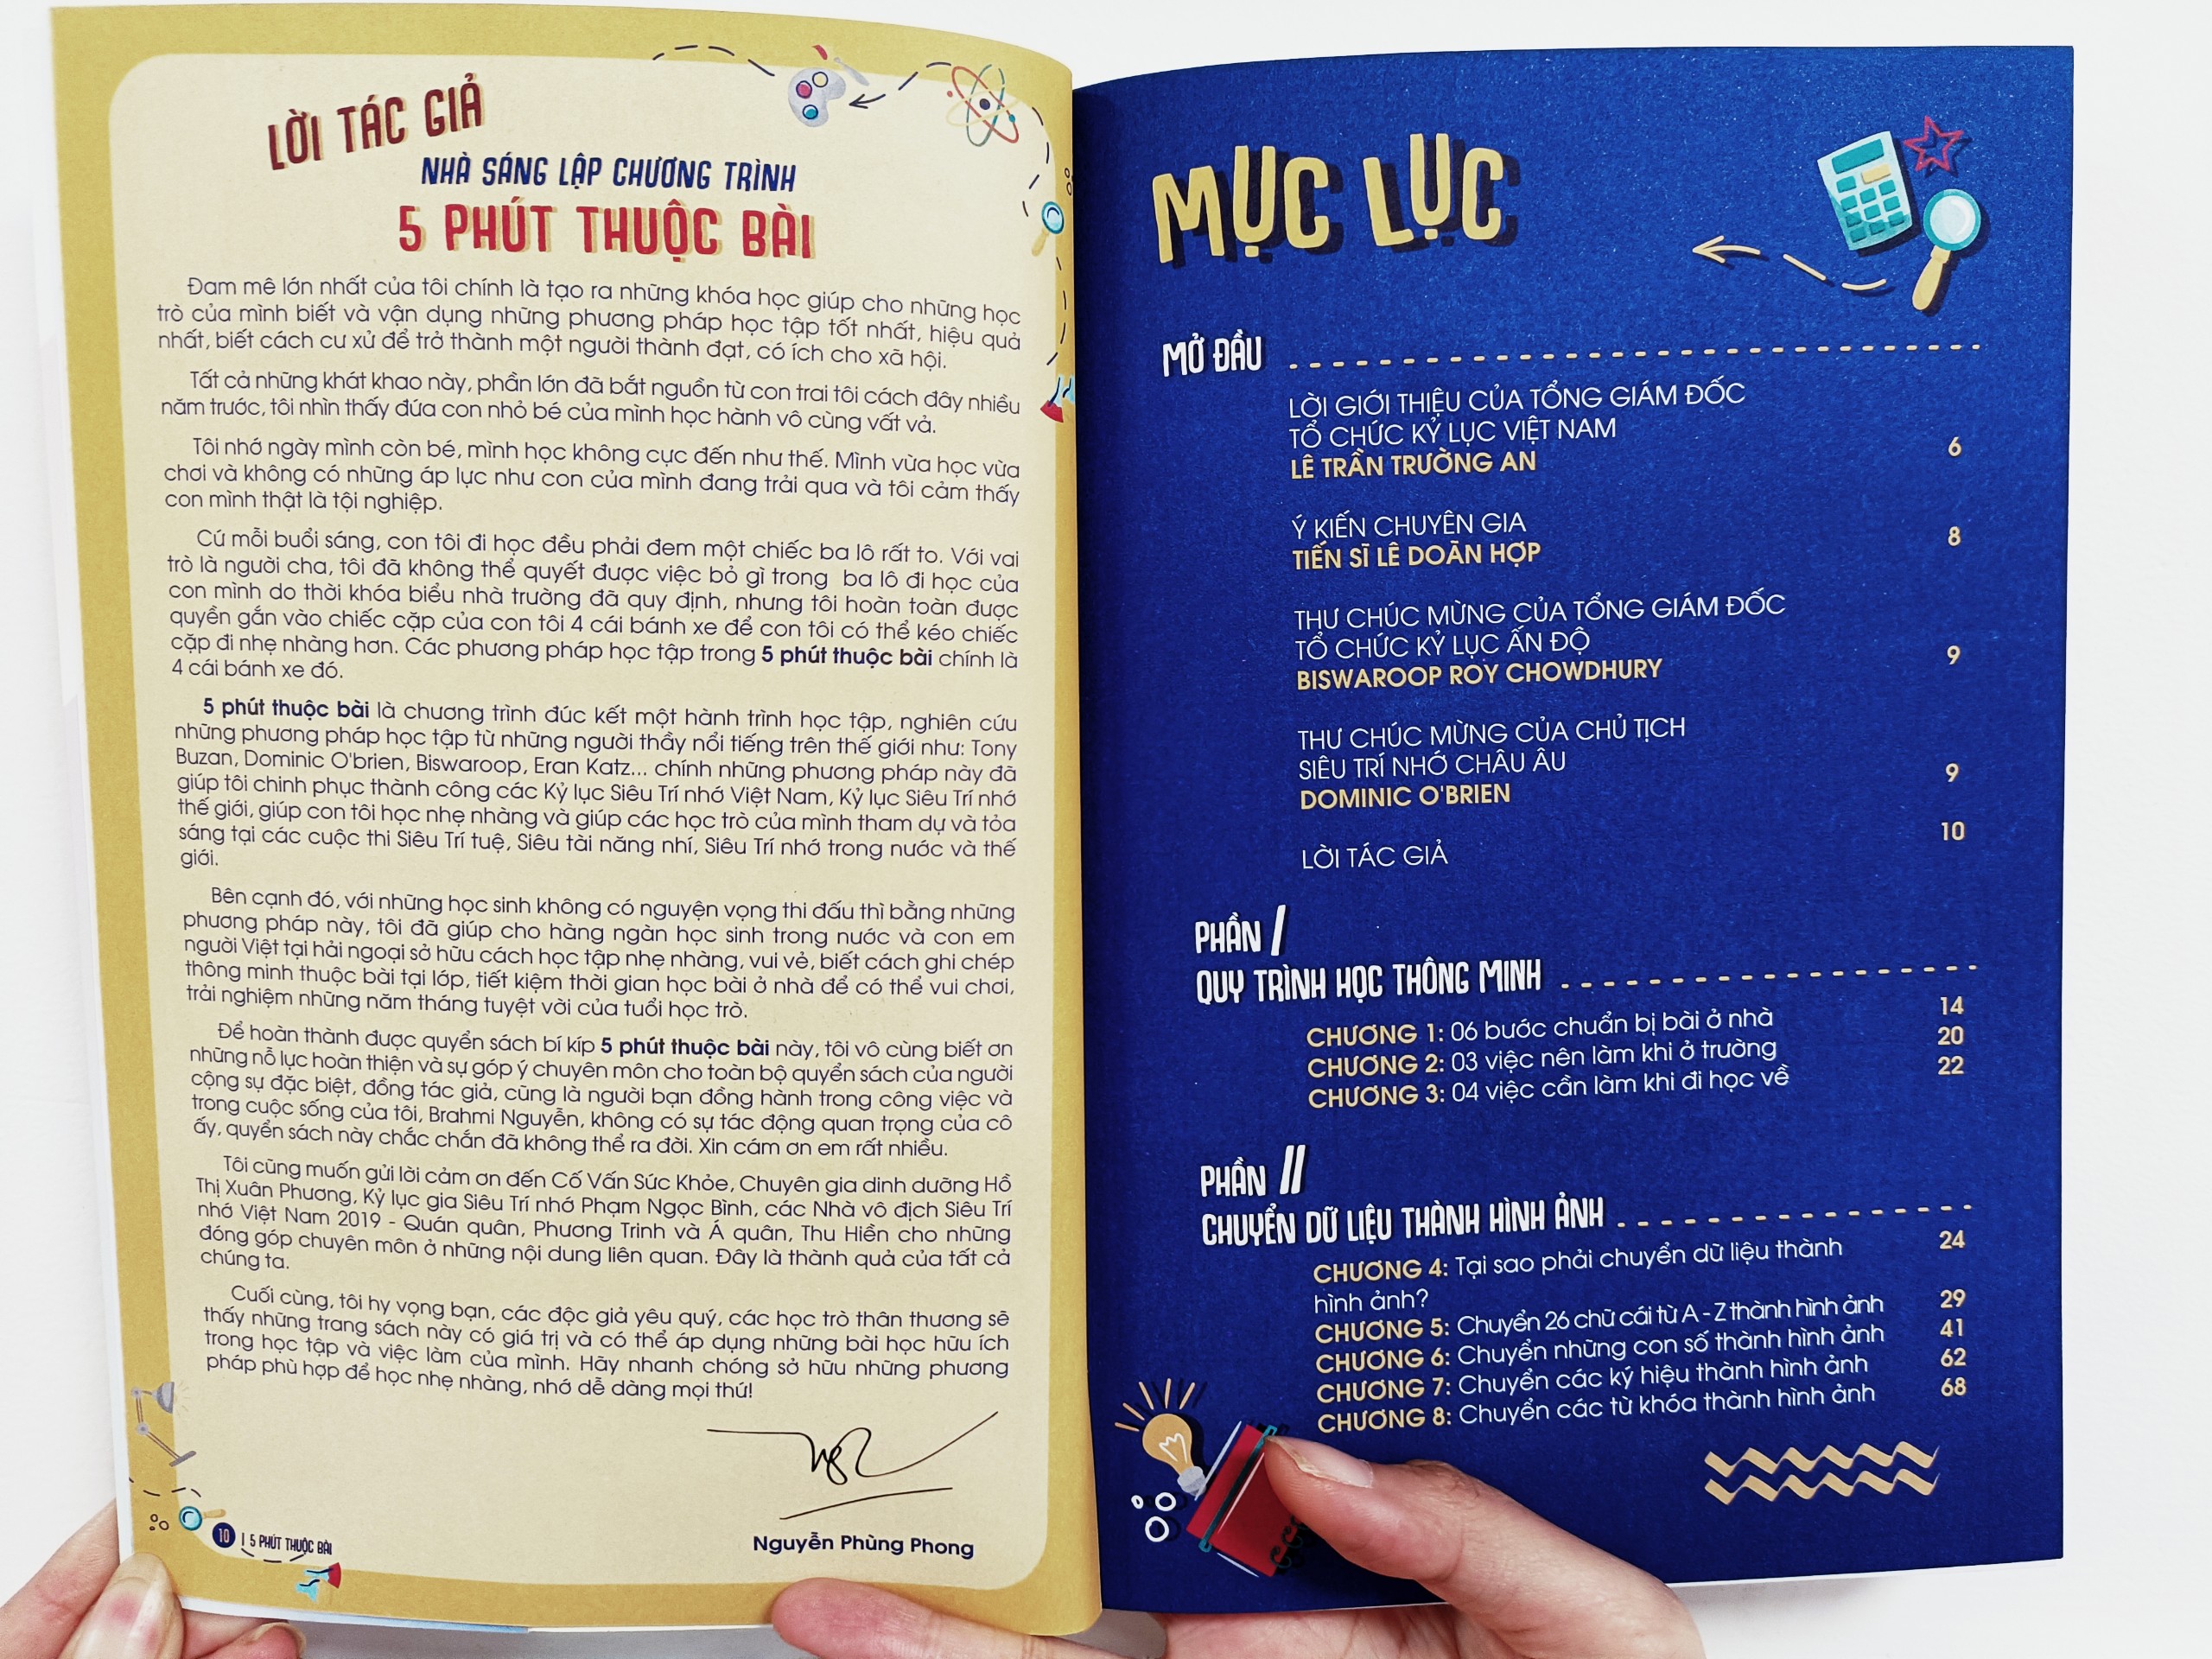 LỜI TÁC GIẢ
NHÀ SÁNG LẬP CHƯƠNG TRÌNH
5 PHÚT THUỘC BÀI
Đam mê lớn nhất của tôi chính là tạo ra những khóa học giúp cho những học
trò của mình biết và vận dụng những phương pháp học tập tốt nhất, hiệu quả
nhất, biết cách cư xử để trở thành một người thành đạt, có ích cho xã hội.
Tất cả những khát khao này, phần lớn đã bắt nguồn từ con trai tôi cách đây nhiều
năm trước, tôi nhìn thấy đứa con nhỏ bé của mình học hành vô cùng vất vả.
Tôi nhớ ngày mình còn bé, mình học không cực đến như thế. Mình vừa học vừa
chơi và không có những áp lực như con của mình đang trải qua và tôi cảm thấy
con mình thật là tội nghiệp.
Cứ mỗi buổi sáng, con tôi đi học đều phải đem một chiếc ba lô rất to. Với vai
trò là người cha, tôi đã không thể quyết được việc bỏ gì trong ba lô đi học của
con mình do thời khóa biểu nhà trường đã quy định, nhưng tôi hoàn toàn được
quyền gắn vào chiếc cặp của con tôi 4 cái bánh xe để con tôi có thể kéo chiếc
cặp đi nhẹ nhàng hơn. Các phương pháp học tập trong 5 phút thuộc bài chính là
4 cái bánh xe đó.
5 phút thuộc bài là chương trình đúc kết một hành trình học tập, nghiên cứu
những phương pháp học tập từ những người thầy nổi tiếng trên thế giới như: Tony
Buzan, Dominic O'brien, Biswaroop, Eran Katz... chính những phương pháp này đã
giúp tôi chinh phục thành công các Kỷ lục Siêu Trí nhớ Việt Nam, Kỷ lục Siêu Trí nhớ
thế giới, giúp con tôi học nhẹ nhàng và giúp các học trò của mình tham dự và tỏa
sáng tại các cuộc thi Siêu Trí tuệ, Siêu tài năng nhí, Siêu Trí nhớ trong nước và thế
giới.
Bên cạnh đó, với những học sinh không có nguyện vọng thi đấu thì bằng những
phương pháp này, tôi đã giúp cho hàng ngàn học sinh trong nước và con em
người Việt tại hải ngoại sở hữu cách học tập nhẹ nhàng, vui vẻ, biết cách ghi chép
thông minh thuộc bài tại lớp, tiết kiệm thời gian học bài ở nhà để có thể vui chơi,
trải nghiệm những năm tháng tuyệt vời của tuổi học trò.
Để hoàn thành được quyển sách bí kíp 5 phút thuộc bài này, tôi vô cùng biết ơn
những nỗ lực hoàn thiện và sự góp ý chuyên môn cho toàn bộ quyển sách của người
cộng sự đặc biệt, đồng tác giả, cũng là người bạn đồng hành trong công việc và
trong cuộc sống của tôi, Brahmi Nguyễn, không có sự tác động quan trọng của cô
ấy, quyển sách này chắc chắn đã không thể ra đời. Xin cám ơn em rất nhiều.
Tôi cũng muốn gửi lời cảm ơn đến Cố Vấn Sức Khỏe, Chuyên gia dinh dưỡng Hồ
Thị Xuân Phương, Kỷ lục gia Siêu Trí nhớ Phạm Ngọc Bình, các Nhà vô địch Siêu Trí
nhớ Việt Nam 2019 - Quán quân, Phương Trinh và Á quân, Thu Hiền cho những
đóng góp chuyên môn ở những nội dung liên quan. Đây là thành quả của tất cả
chúng ta.
Cuối cùng, tôi hy vọng bạn, các độc giả yêu quý, các học trò thân thương sẽ
thấy những trang sách này có giá trị và có thể áp dụng những bài học hữu ích
trong học tập và việc làm của mình. Hãy nhanh chóng sở hữu những phương
pháp phù hợp để học nhẹ nhàng, nhớ dễ dàng mọi thứ!
Nguyễn Phùng Phong
10 | 5 PHÚT THUỘC BÀI
MỤC LỤC
MỞ ĐẦU
LỜI GIỚI THIỆU CỦA TỔNG GIÁM ĐỐC
TỔ CHỨC KỶ LỤC VIỆT NAM
LÊ TRẦN TRƯỜNG AN 6
Ý KIẾN CHUYÊN GIA
TIẾN SĨ LÊ DOÃN HỢP 8
THƯ CHÚC MỪNG CỦA TỔNG GIÁM ĐỐC
TỔ CHỨC KỶ LỤC ẤN ĐỘ
BISWAROOP ROY CHOWDHURY 9
THƯ CHÚC MỪNG CỦA CHỦ TỊCH
SIÊU TRÍ NHỚ CHÂU ÂU
DOMINIC O'BRIEN 9
LỜI TÁC GIẢ 10
PHẦN I
QUY TRÌNH HỌC THÔNG MINH
CHƯƠNG 1: 06 bước chuẩn bị bài ở nhà 14
CHƯƠNG 2: 03 việc nên làm khi ở trường 20
CHƯƠNG 3: 04 việc cần làm khi đi học về 22
PHẦN II
CHUYỂN DỮ LIỆU THÀNH HÌNH ẢNH
CHƯƠNG 4: Tại sao phải chuyển dữ liệu thành 24
hình ảnh?
CHƯƠNG 5: Chuyển 26 chữ cái từ A - Z thành hình ảnh 29
CHƯƠNG 6: Chuyển những con số thành hình ảnh 41
CHƯƠNG 7: Chuyển các ký hiệu thành hình ảnh 62
CHƯƠNG 8: Chuyển các từ khóa thành hình ảnh 68